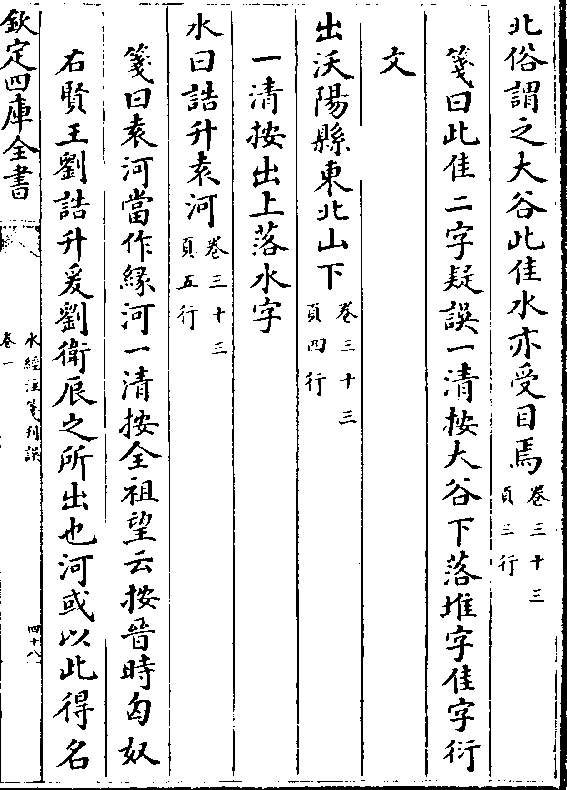 北俗謂之大谷北佳水亦受目焉卷三十三
頁三行
箋曰此佳二字疑誤一清按大谷下落堆字佳字衍
文
出沃陽縣東北山下卷三十三
頁四行
一清按出上落水字
水曰誥升袁河卷三十三
頁五行
箋曰袁河當作緣河一清按全祖望云按晉時匈奴
右賢王劉誥升爰劉衛辰之所出也河或以此得名
欽定四庫全書
水經注箋刊誤
卷一
四十八